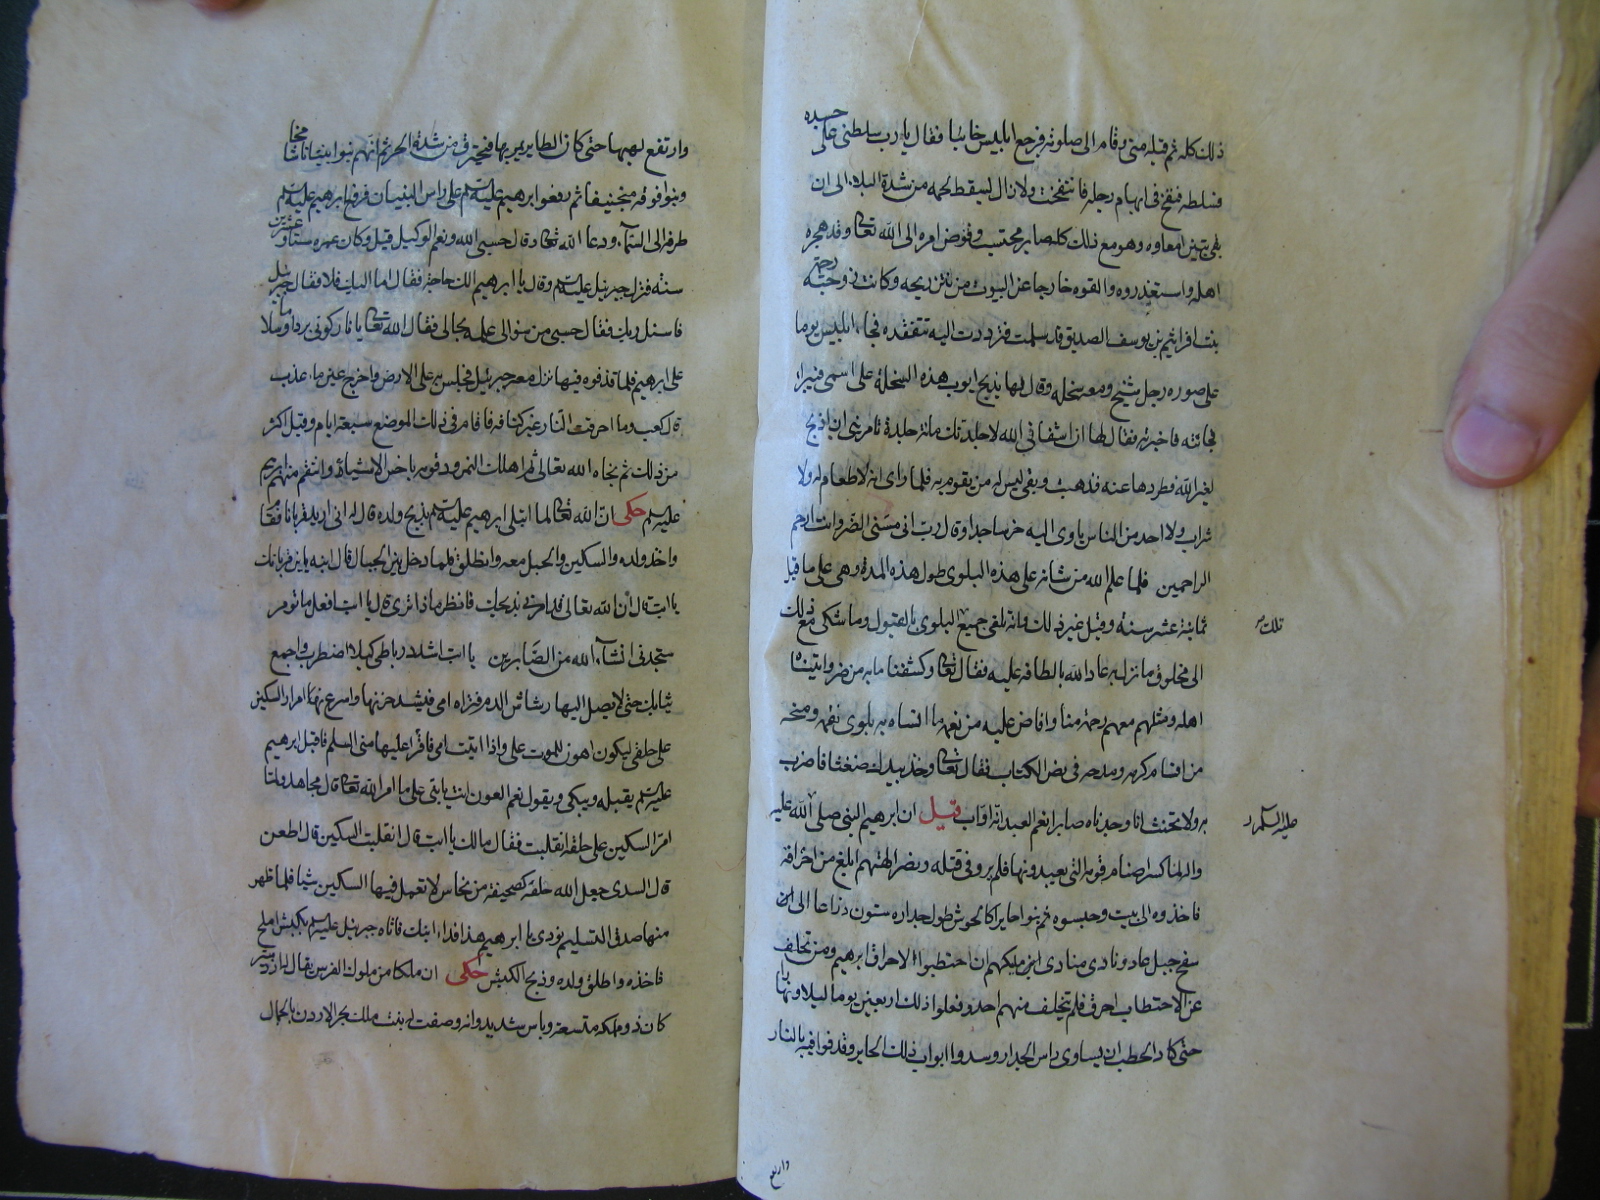 ذلك كله ثم قبله منى وقام الى صلوته فرجع ابليس خائبا فقال يا رب سلطنى على جسده
فسلطه فنفخ فى ابهام رجله فانتفخت ولا زال يسقط لحمه من شدة البلاء الى ان
بقى تبين امعاوه وهو مع ذلك كله صابر محتسب وفوض امره الى الله تعالى وقد هجره
اهله واستعذروه والقوه خارجا عن البيوت من نتن ريحه وكانت زوجته رحمة
بنت افراثيم بن يوسف الصديق قد سلمت فترددت اليه تتفقده فجاء ابليس يوما
على صورة رجل شيخ ومعه سخله وقال لها يذبح ايوب هذه السخلة على اسمى فيبرا
فجائته فاخبرته فقال لها ان شفانى الله لاجلدنك مائة جلدة تامرينى ان اذبح
لغير الله فطردها عنه فذهبت وبقى ليس له من يقوم به فلما راى انه لا طعام له ولا
شراب ولا احد من الناس ياوى اليه خر ساجدا وقال رب انى مسنى الضر وانت ارحم
الراحمين فلما علم الله من شانه على هذه البلوى طول هذه المدة وهى على ما قيل
ثمانية عشر سنة وقيل غير ذلك وانه تلقى جميع البلوى بالقبول وما شكى مع ذلك
تلك
الى مخلوق ما نزل به عاد الله بالطافه عليه فقال تعالى وكشفنا ما به من ضر واتيناه
اهله ومثلهم معهم رحمة منا وافاض عليه من نعمه ما انساه به بلوى نقمه ومنحه
من اقسام كرمه ومدحه فى نص الكتاب فقال تعالى وخذ بيدك ضغثا فاضرب
به ولا تحنث انا وجدناه صابرا نعم العبد انه اواب قيل ان ابرهيم النبى صلى الله عليه
واله لما كسر اصنام قومه التى يعبدونها فلم يروا فى قتله ونصر الهتهم ابلغ من احراقه
فاخذوه الى بيت وحبسوه ثم بنوا حايرا كالحوش طول جداره ستون ذراعا الى
سفح جبل عاد ونادى منادى ملكهم ان احتطبوا لاحراق ابرهيم ومن تخلف
عن الاحتطاب احرق فلم يتخلف منهم احد وفعلوا ذلك اربعين يوما ليلا ونهارا
حتى كاد الحطب ان يساوى راس الجدار وسدوا ابواب ذلك الحاير وقذفوا فيه بالنار
وارتفع
وارتفع لهبها حتى كان الطاير يمر بها فيحترق من شدة الحر ثم انهم بنوا بنيانا شامخا
وبنوا فوقه منجنيقا ثم رفعوا ابرهيم عليه السلم على راس البنيان فرفع ابرهيم عليه السلم
طرفه الى السماء ودعا الله تعالى وقال حسبى الله ونعم الوكيل قيل وكان عمره ستا وعشرين
سنة فنزل جبرئيل عليه السلم وقال يا ابرهيم الك حاجة فقال اما اليك فلا فقال جبرئيل
فاسئل ربك فقال حسبى من سؤالى علمه بحالى فقال الله تعالى يا نار كونى بردا وسلاما
على ابرهيم فلما قذفوه فيها نزل معه جبرئيل فجلس به على الارض واخرج عين ماء عذب
قال كعب وما احرقت النار غير كتافه فاقام فى ذلك الموضع سبعة ايام وقيل اكثر
من ذلك ثم نجاه الله تعالى ثم اهلك النمرود وقومه باخس الاشياء وانتقم منهم لابرهيم
عليه السلم حكى ان الله تعالى لما ابتلى ابرهيم عليه السلم بذبح ولده قال له انى اريد قربانا
واخذ ولده والسكين والحبل معه وانطلق فلما دخل بين الجبال قال ابنه يا ابت اين قربانك
يا ابت قال ان الله تعالى قد امرنى بذبحك فانظر ماذا ترى قال يا ابت افعل ما تومر
ستجدنى انشاء الله من الصابرين يا ابت اشدد رباطى كيلا اضطرب واجمع
ثيابك حتى لا يصل اليها رشاش الدم فتراه امى فيشتد حزنها واسرع امرار السكين
على حلقى ليكون اهون للموت على واذا اتيت امى فاقرا عليها منى السلم فاقبل ابرهيم
عليه السلم يقبله ويبكى ويقول نعم العون انت يا بنى على ما امر الله تعالى قال مجاهد ولما
امر السكين على حلقه انقلبت فقال مالك يا ابت قال انقلبت السكين قال اطعن
قال السدى جعل الله حلقه كصحيفة من نحاس لا تعمل فيها السكين شيا فلما ظهر
منها صدق التسليم نودى يا ابرهيم هذا فداء ابنك فاتاه جبرئيل عليه السلم بكبش املح
فاخذه واطلق ولده وذبح الكبش حكى ان ملكا من ملوك الفرس يقال له ازدشير
كان ذو مملكة متسعة وباس شديد وانه وصفت له بنت ملك بحر الاردن بالجمال